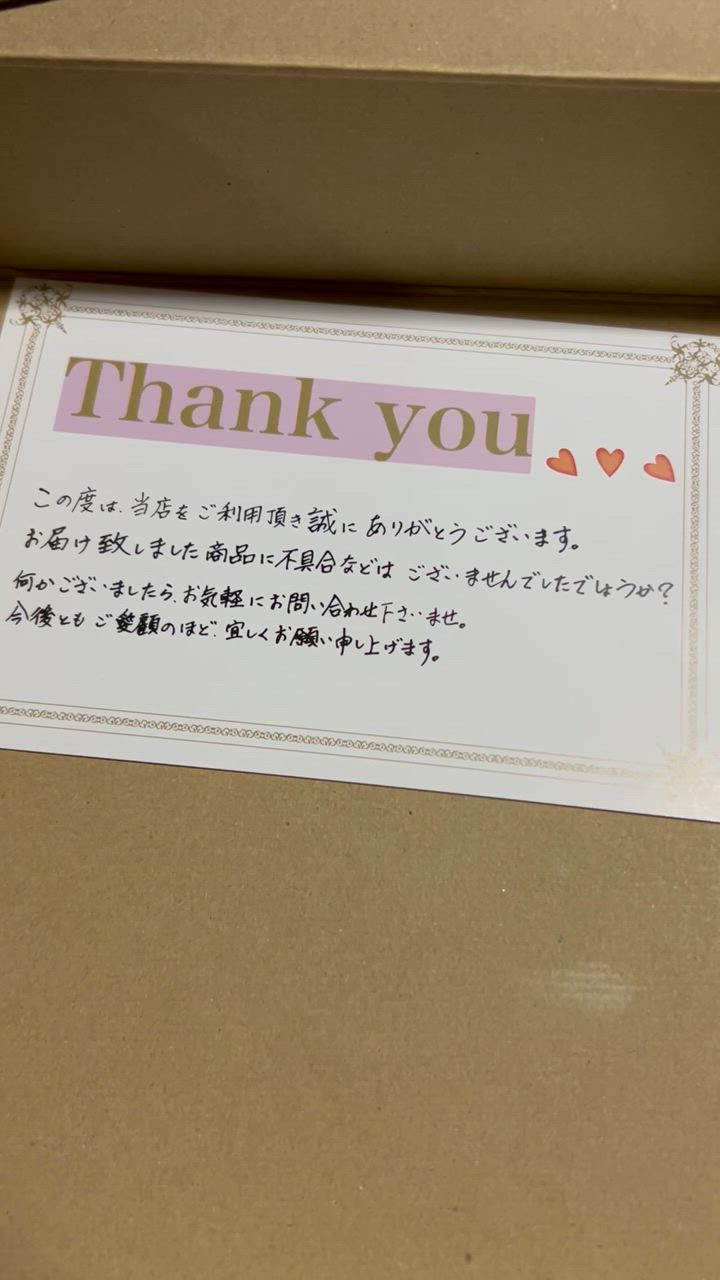 Thank you
この度は、当店をご利用頂き誠にありがとうございます。
お届け致しました商品に不具合などはございませんでしたでしょうか?
何かございましたら、お気軽にお問い合わせ下さいませ。
今後ともご愛顧のほど、宜しくお願い申し上げます。